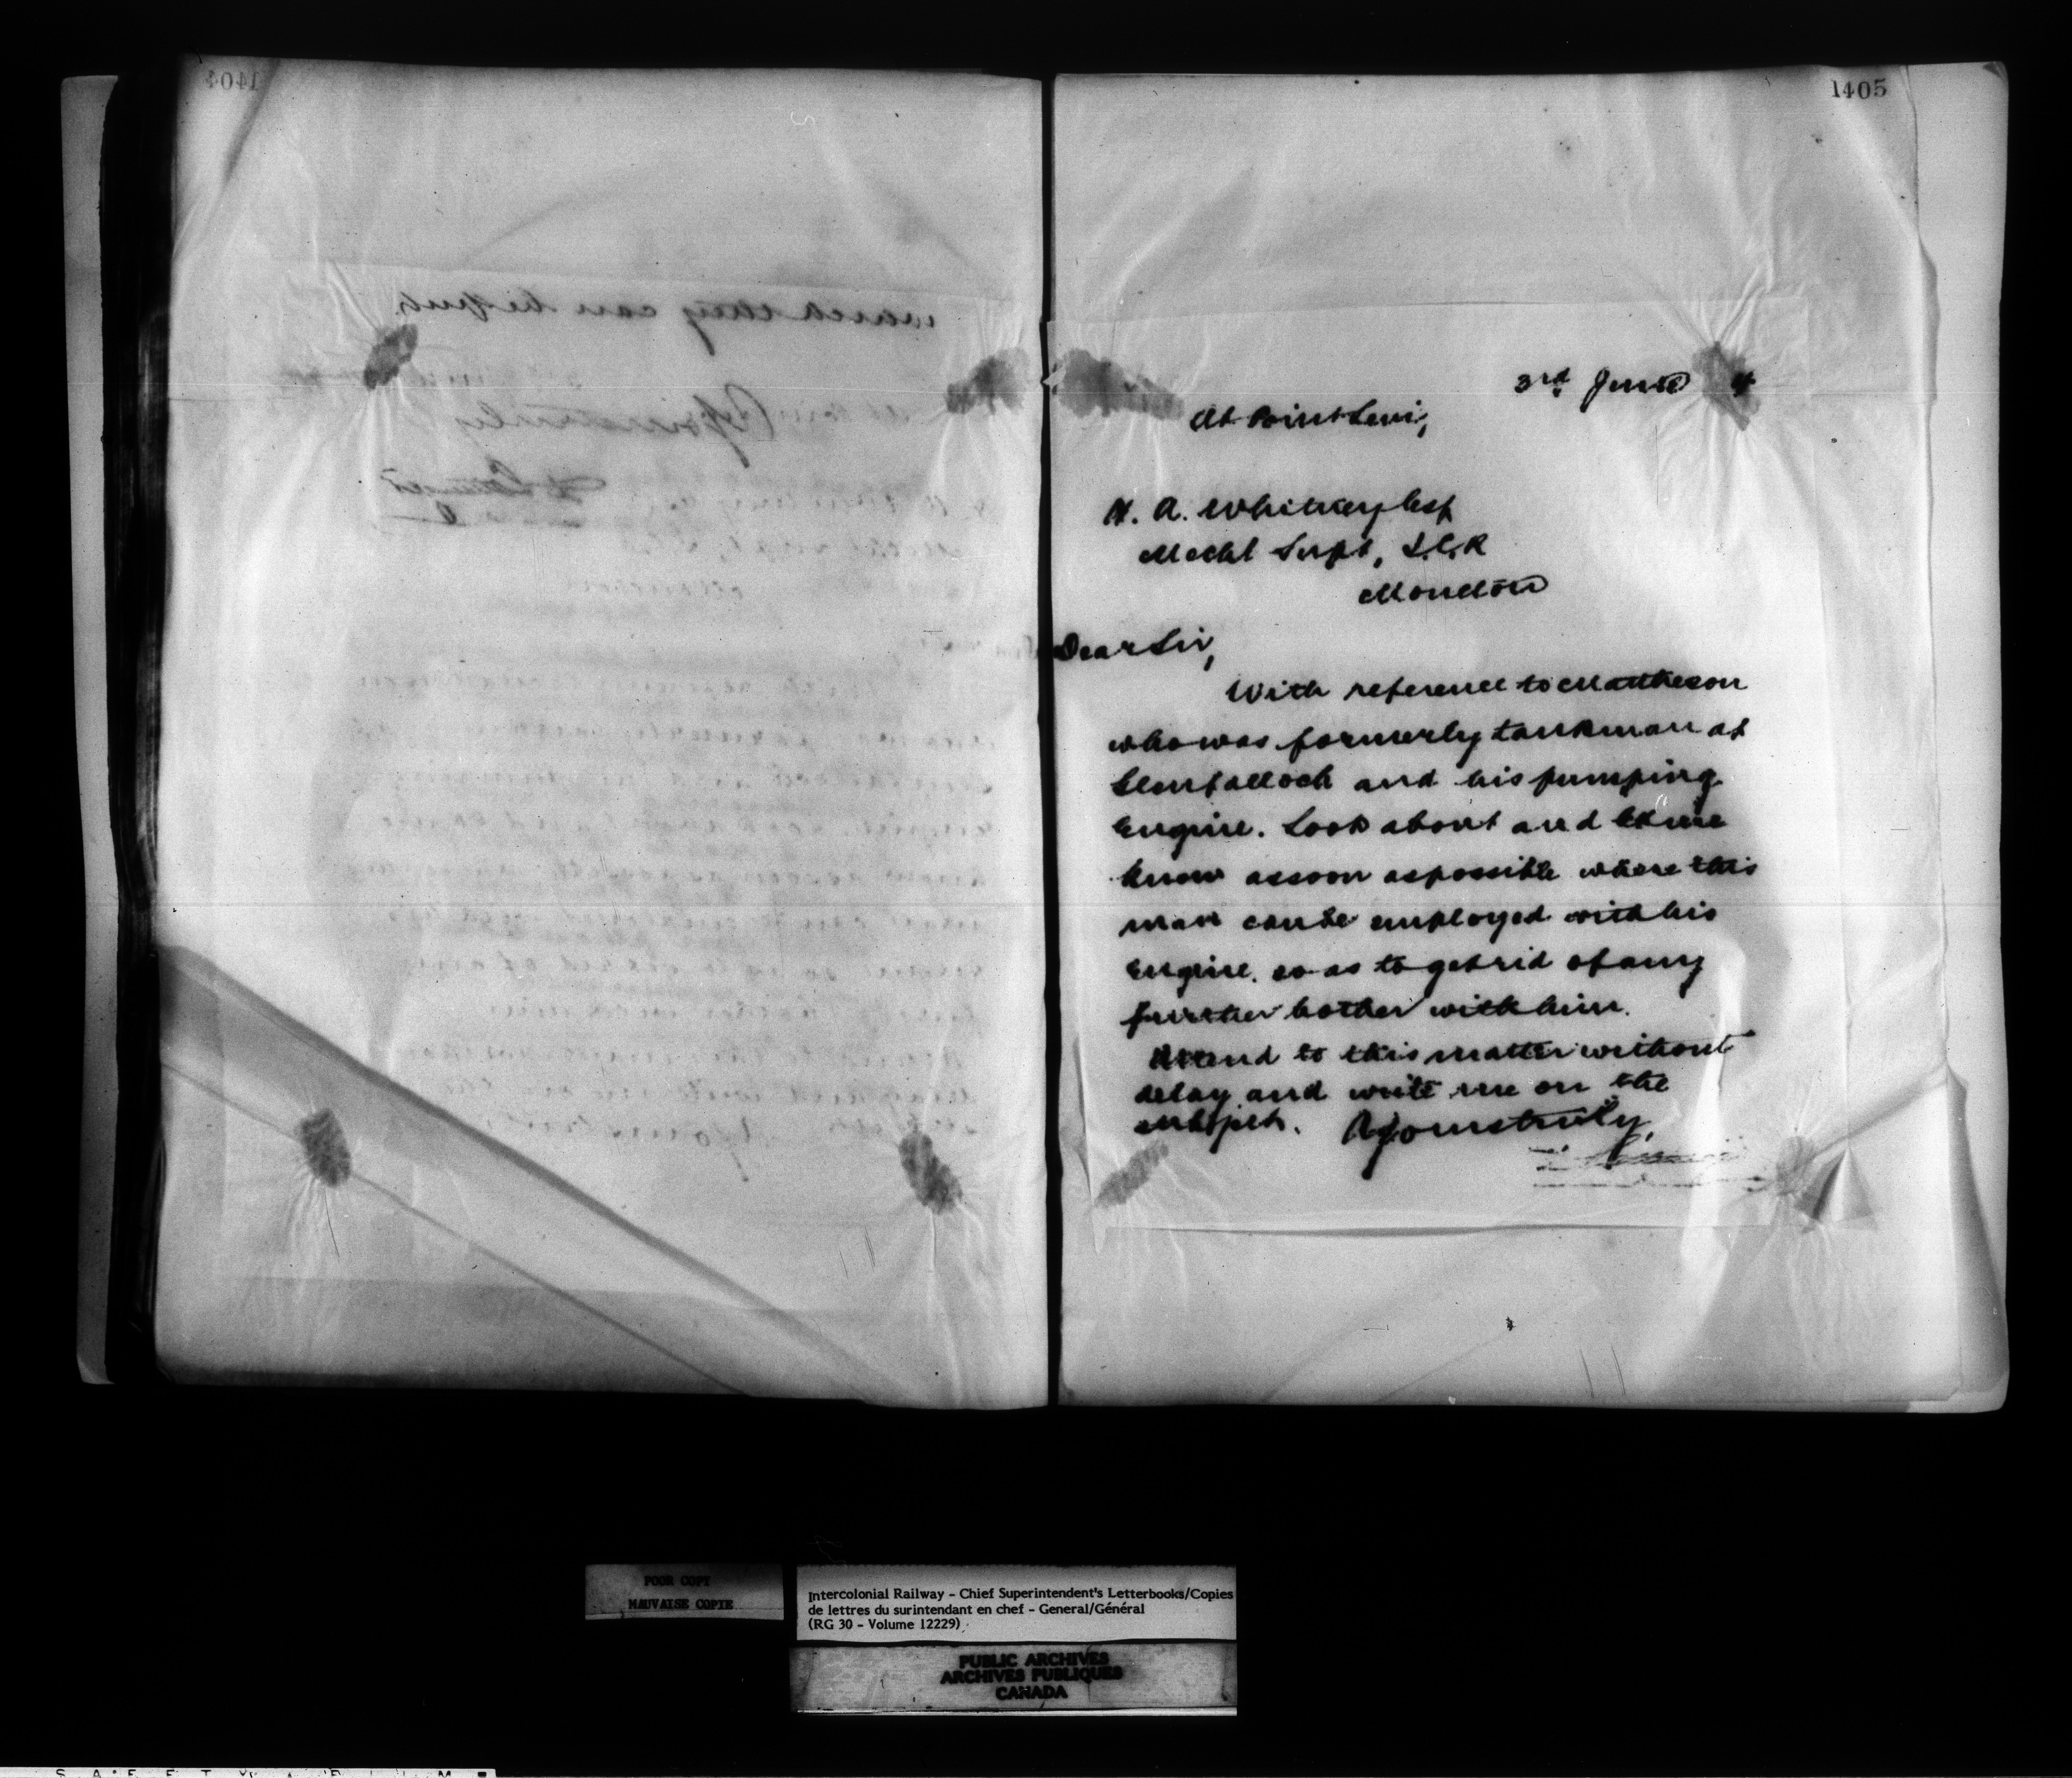 1404
which they can be put.
Yours truly
1405
3rd June 4
At Point Levi,
H. A. Whitney Esq
Mechl Supt, I.C.R
Moncton
Dear Sir,
With reference to Matheson
who was formerly tankman at
Glenfalloch and his pumping
Engine. Look about and let me
know as soon as possible where this
man can be employed with his
Engine. so as to get rid of any
further bother with him.
Attend to this matter without
delay and write me on the
subject. Yours truly,
POOR COPY
MAUVAISE COPIE
Intercolonial Railway - Chief Superintendent's Letterbooks/Copies
de lettres du surintendant en chef - General/Général
(RG 30 - Volume 12229)
PUBLIC ARCHIVES
ARCHIVES PUBLIQUES
CANADA